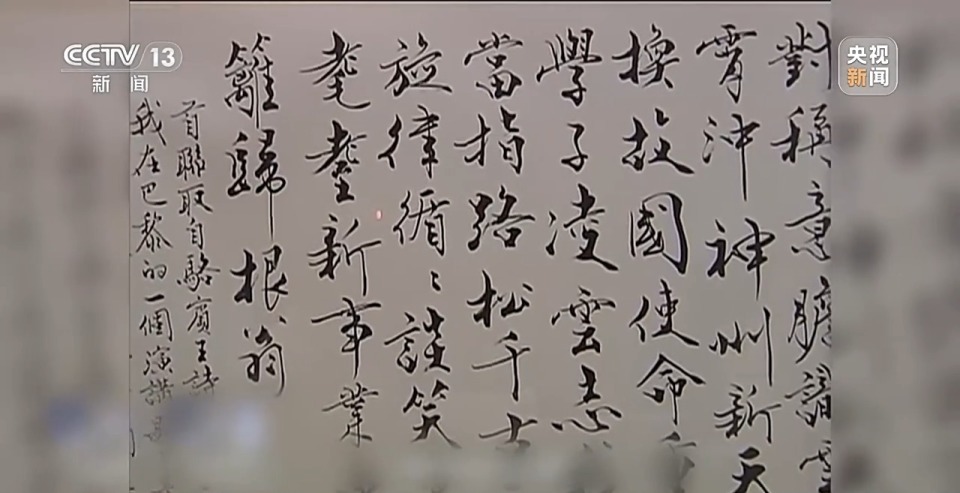 CCTV 13
新闻
央视
新闻
對稱意膽識雲
霄沖神州新天
換故國使命
學子凌雲志
當指路松千古
旋律循々談笑
耄耋新事業
籬歸根翁
首聯取自駱賓王詩
我在巴黎的一個演講是